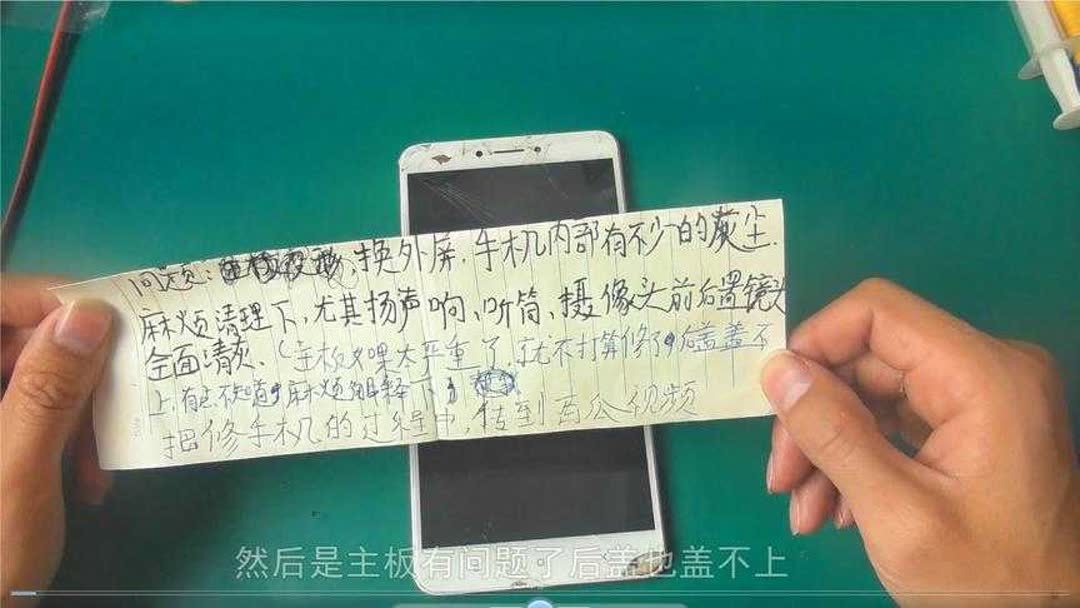 问题:换外屏.手机内部有不少的灰尘.
麻烦清理下,尤其扬声响、听筒、摄像头前后置镜头
全面清灰、(主板如果太严重了,就不打算修了,后盖盖不
上,有点不知道,麻烦解释下
把修手机的过程中,传到西瓜视频
然后是主板有问题了后盖也盖不上